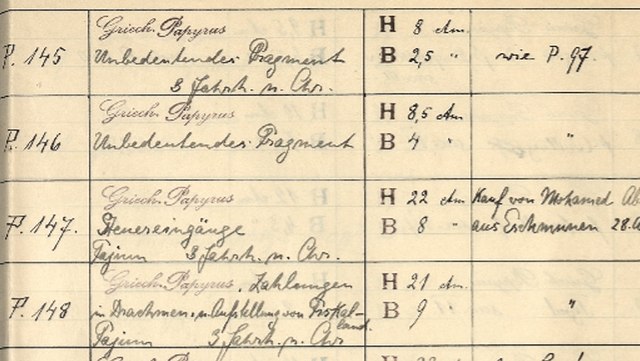 Griech. Papyrus H 8 cm.
P. 145 Unbedeutendes Fragment B 2,5 " wie P. 97.
3 Jahrh. n. Chr.
Griech. Papyrus H 8,5 cm
P. 146 Unbedeutendes Fragment B 4 " "
Griech. Papyrus H 22 cm Kauf von Mohamed
P. 147. Steuereingänge B 8 " aus Eschmunen 28.
Fajum 3 Jahrh. n. Chr.
Griech. Papyrus, Zahlungen H 21 cm.
P. 148 in Drachmen, u. Aufstellung von Fiskal- B 9 "
land.
Fajum 3 Jahrh. n. Chr